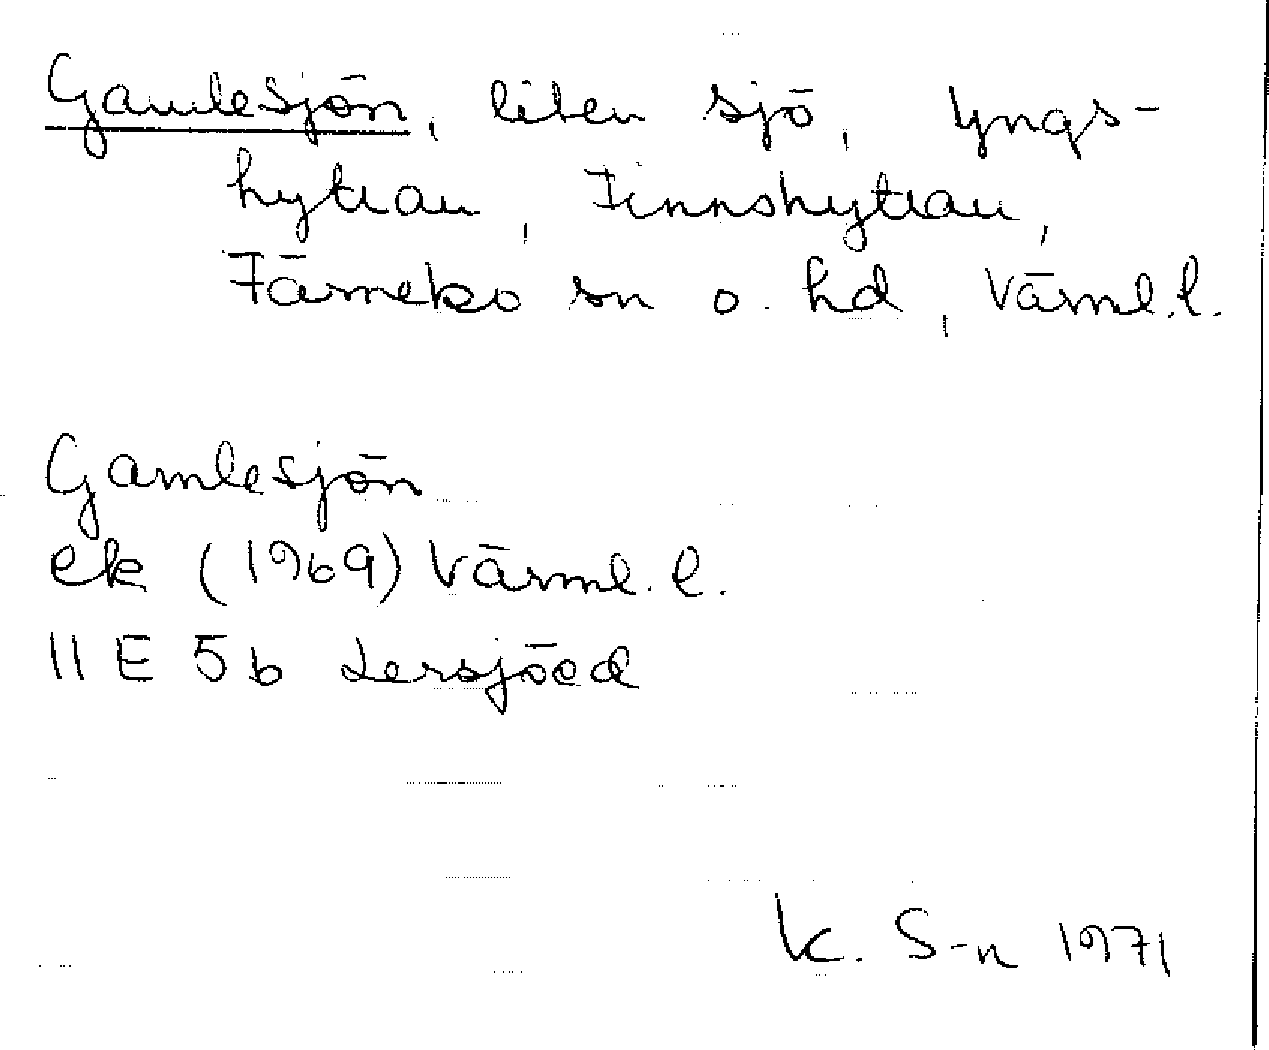 Gamlesjön, liten sjö, Yngs-
hyttan, Finnshyttan,
Färnebo sn o. hd, Värml.l.
Gamlesjön
ek (1969) Värml. l.
11 E 5 b Lersjöed
K. S-n 1971